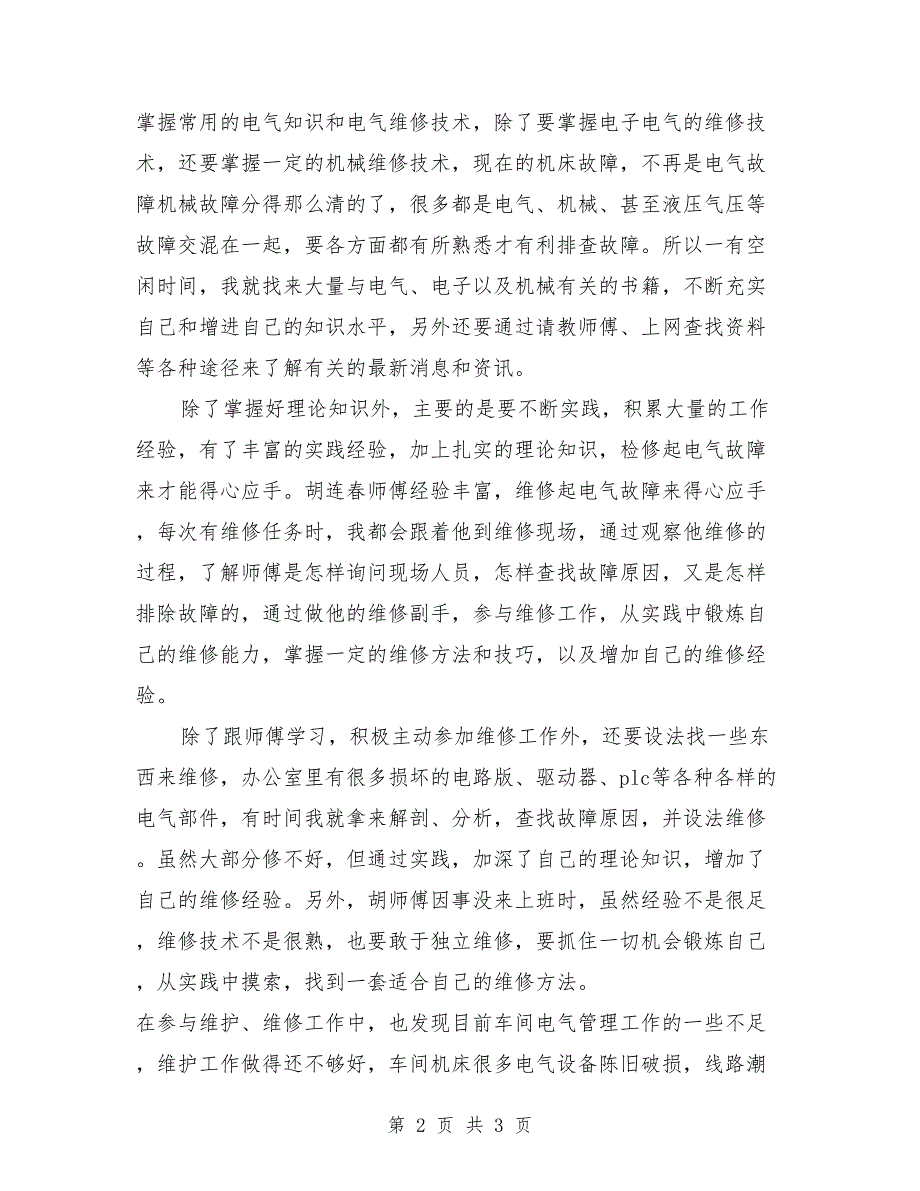 掌握常用的电气知识和电气维修技术，除了要掌握电子电气的维修技
术，还要掌握一定的机械维修技术，现在的机床故障，不再是电气故
障机械故障分得那么清的了，很多都是电气、机械、甚至液压气压等
故障交混在一起，要各方面都有所熟悉才有利排查故障。所以一有空
闲时间，我就找来大量与电气、电子以及机械有关的书籍，不断充实
自己和增进自己的知识水平，另外还要通过请教师傅、上网查找资料
等各种途径来了解有关的最新消息和资讯。
除了掌握好理论知识外，主要的是要不断实践，积累大量的工作
经验，有了丰富的实践经验，加上扎实的理论知识，检修起电气故障
来才能得心应手。胡连春师傅经验丰富，维修起电气故障来得心应手
，每次有维修任务时，我都会跟着他到维修现场，通过观察他维修的
过程，了解师傅是怎样询问现场人员，怎样查找故障原因，又是怎样
排除故障的，通过做他的维修副手，参与维修工作，从实践中锻炼自
己的维修能力，掌握一定的维修方法和技巧，以及增加自己的维修经
验。
除了跟师傅学习，积极主动参加维修工作外，还要设法找一些东
西来维修，办公室里有很多损坏的电路版、驱动器、plc等各种各样的
电气部件，有时间我就拿来解剖、分析，查找故障原因，并设法维修
。虽然大部分修不好，但通过实践，加深了自己的理论知识，增加了
自己的维修经验。另外，胡师傅因事没来上班时，虽然经验不是很足
，维修技术不是很熟，也要敢于独立维修，要抓住一切机会锻炼自己
，从实践中摸索，找到一套适合自己的维修方法。
在参与维护、维修工作中，也发现目前车间电气管理工作的一些不足
，维护工作做得还不够好，车间机床很多电气设备陈旧破损，线路潮
第 2 页 共 3 页